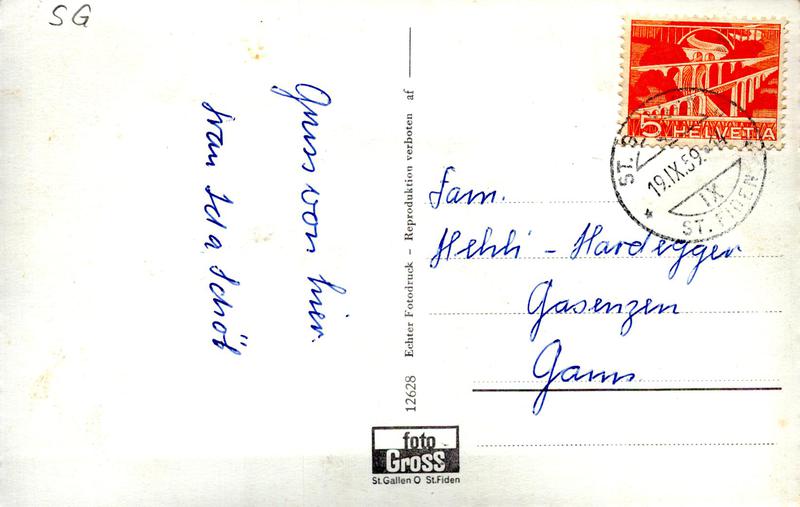 SG
Gruss von hier.
Frau Ida Schöb
12628 Echter Fotodruck – Reproduktion verboten af
foto
Gross
St.Gallen O St.Fiden
5 HELVETIA
ST.
19.IX.59.-14
IX
ST. FIDEN
Fam.
Hehli - Hardegger
Gasenzen
Gams.